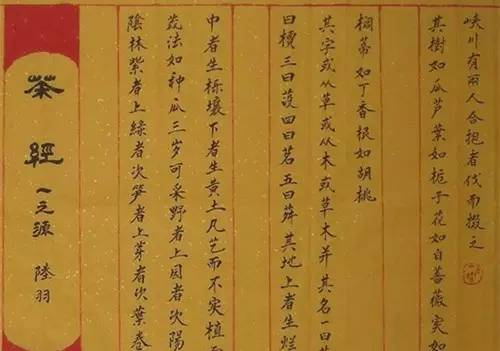 峡川有兩人合抱者伐而掇之
其樹如瓜芦葉如栀子花如白薔薇实如
榈蒂如丁香根如胡桃
其字或从草或从木或草木并其名一曰
曰槚三曰蔎四曰茗五曰荈其地上者生烂
中者生栎壤下者生黄土凡艺而不实植
法如神瓜三岁可采野者上园者次陽
陰林紫者上緑者次笋者上芽者次葉卷
茶經 一之源 陸羽